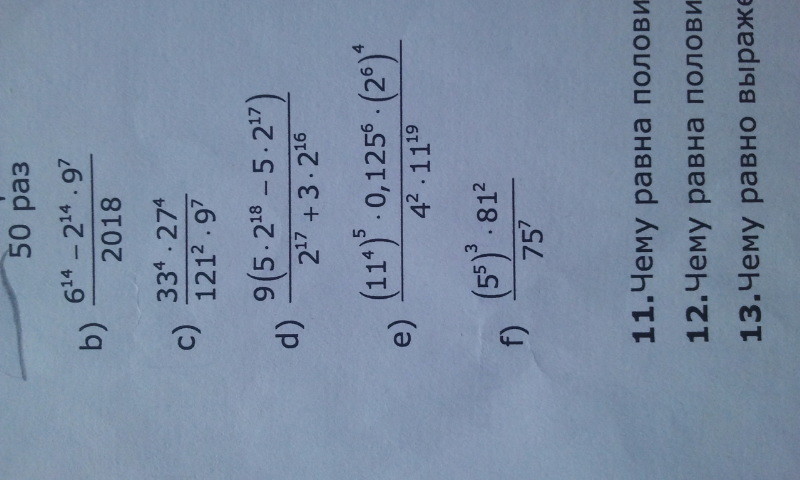 50 раз
b) (6¹⁴ − 2¹⁴ · 9⁷) / 2018
c) (33⁴ · 27⁴) / (121² · 9⁷)
d) 9(5 · 2¹⁸ − 5 · 2¹⁷) / (2¹⁷ + 3 · 2¹⁶)
e) ((11⁴)⁵ · 0,125⁶ · (2⁶)⁴) / (4² · 11¹⁹)
f) ((5⁵)³ · 81²) / 75⁷
11. Чему равна полови
12. Чему равна полови
13. Чему равно выраже